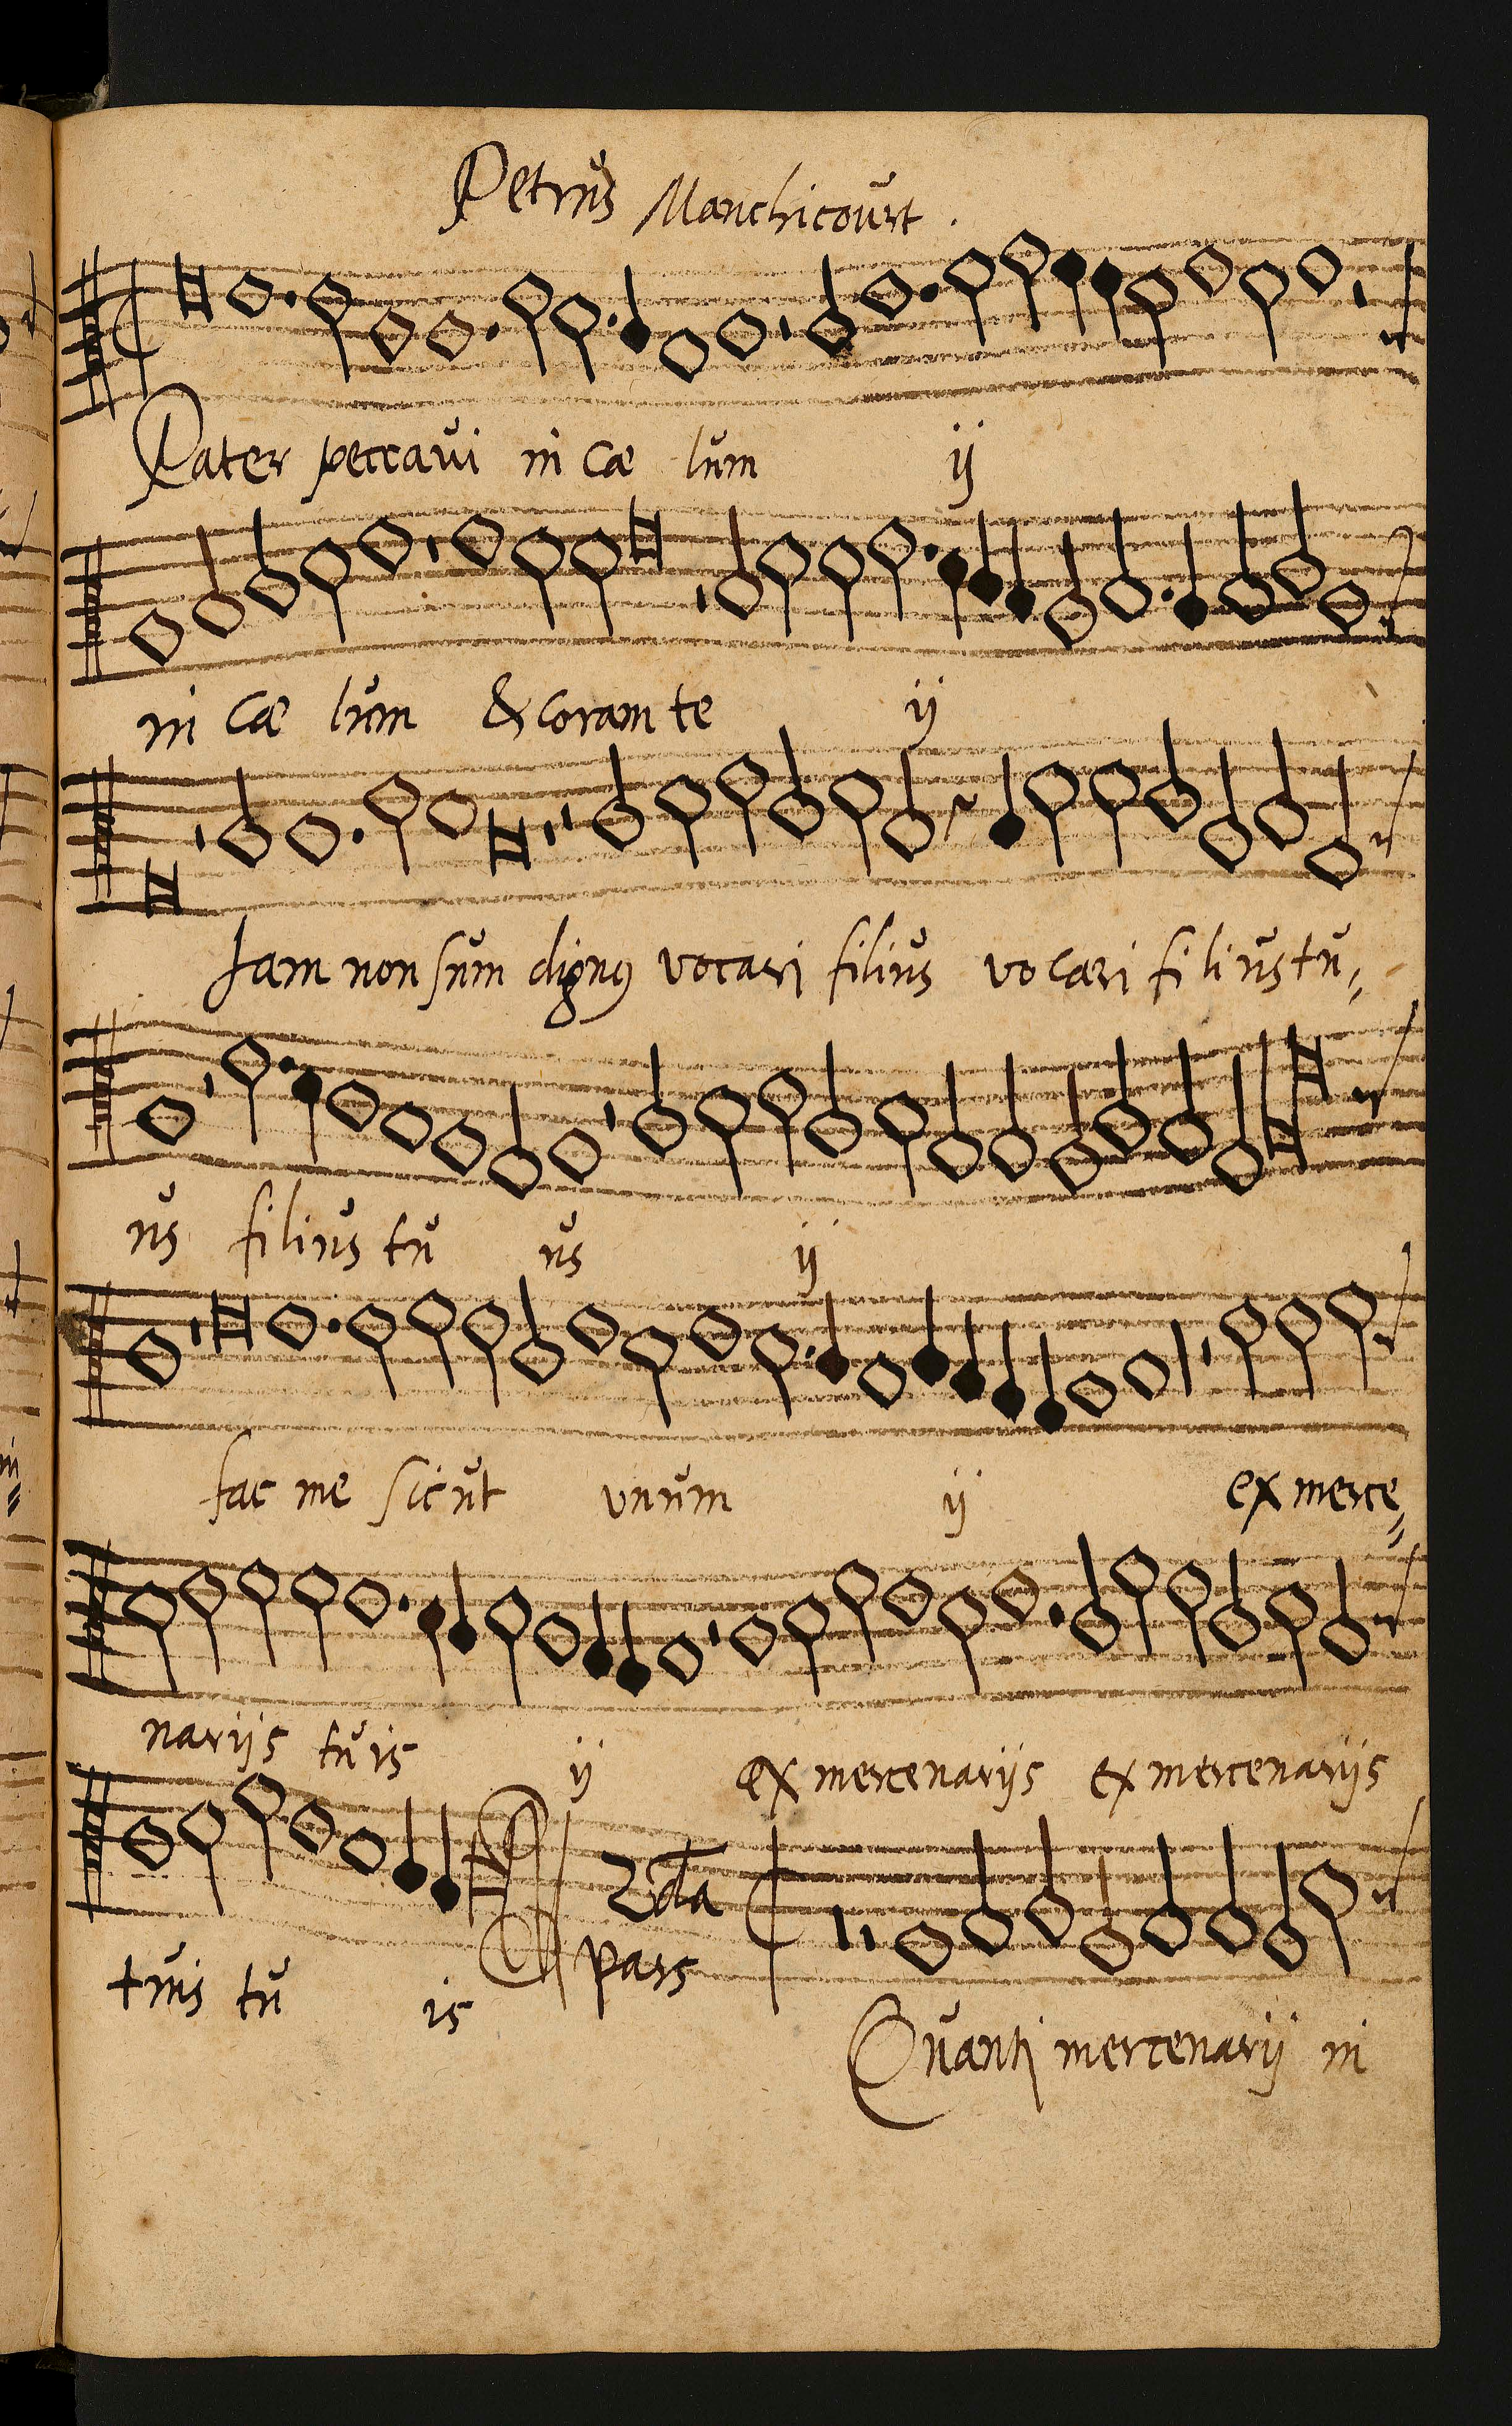 Petrus Manchicourt .
Pater peccavi in cæ lum ij
in cæ lum & coram te ij
Iam non sum dignꝰ vocari filius vocari filius tu=
us filius tu us ij
fac me sicut vnum ij ex merce=
narijs tuis ij ex mercenarijs ex mercenarijs
2da
pars
tuis tu is
Quanti mercenarij in